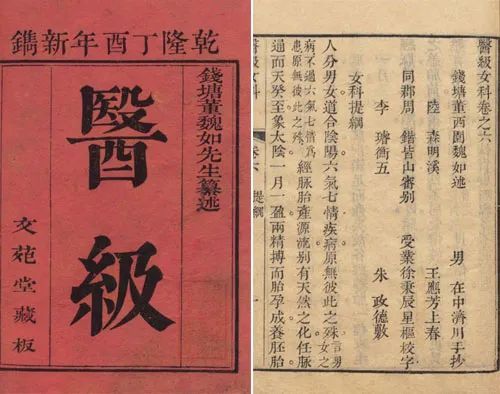 乾隆丁酉年新鐫
錢塘董魏如先生纂述
醫級
文苑堂藏板
醫級女科卷之六
錢塘董西園魏如述 男 在中濟川手抄
陸 森明溪 王應芳上春
同郡周 鍇皆山審別 受業徐秉辰星樞校字
李 璿衡五 朱 政德敷
女科提綱
人分男女道合陰陽六氣七情疾病原無彼此之殊言男女之
病不過六氣七情為患原無彼此之殊經脈胎產源流別有天然之化任脈
通而天癸至象太陰一月一盈兩精搏而胎孕成養胚胎
醫級女科 卷六 提綱 一